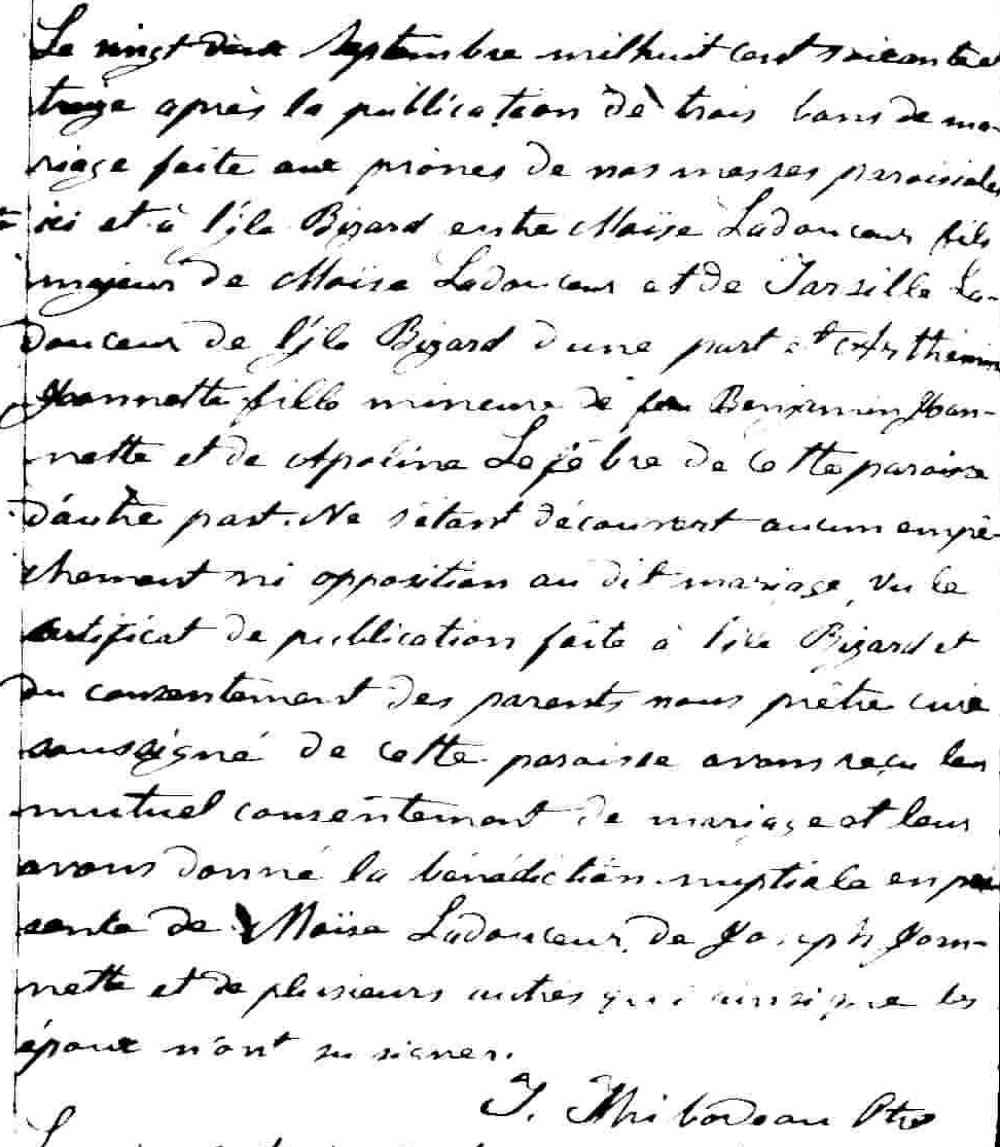 Le vingt deux Septembre mil huit cent soixante et
treize après la publication de trois bans de ma-
riage faite aux prônes de nos messes paroissiales
ici et à l'ile Bizard entre Moïse Ladouceur fils
majeur de Moïse Ladouceur et de Tarsille La-
douceur de l'ile Bizard d'une part et
Joannette fille mineure de feu Benjamin Joan-
nette et de Apoline Lefebre de cette paroisse
d'autre part. Ne s'étant découvert aucun empê-
chement ni opposition au dit mariage, vu le
certificat de publication faite à l'ile Bizard et
du consentement des parents nous prêtre curé
soussigné de cette paroisse avons reçu leur
mutuel consentement de mariage et leur
avons donné la bénédiction nuptiale en pré
sence de Moïse Ladouceur, de Joseph Joan-
nette et de plusieurs autres qui ainsi que les
époux n'ont su signer.
J. Thibodeau Ptre